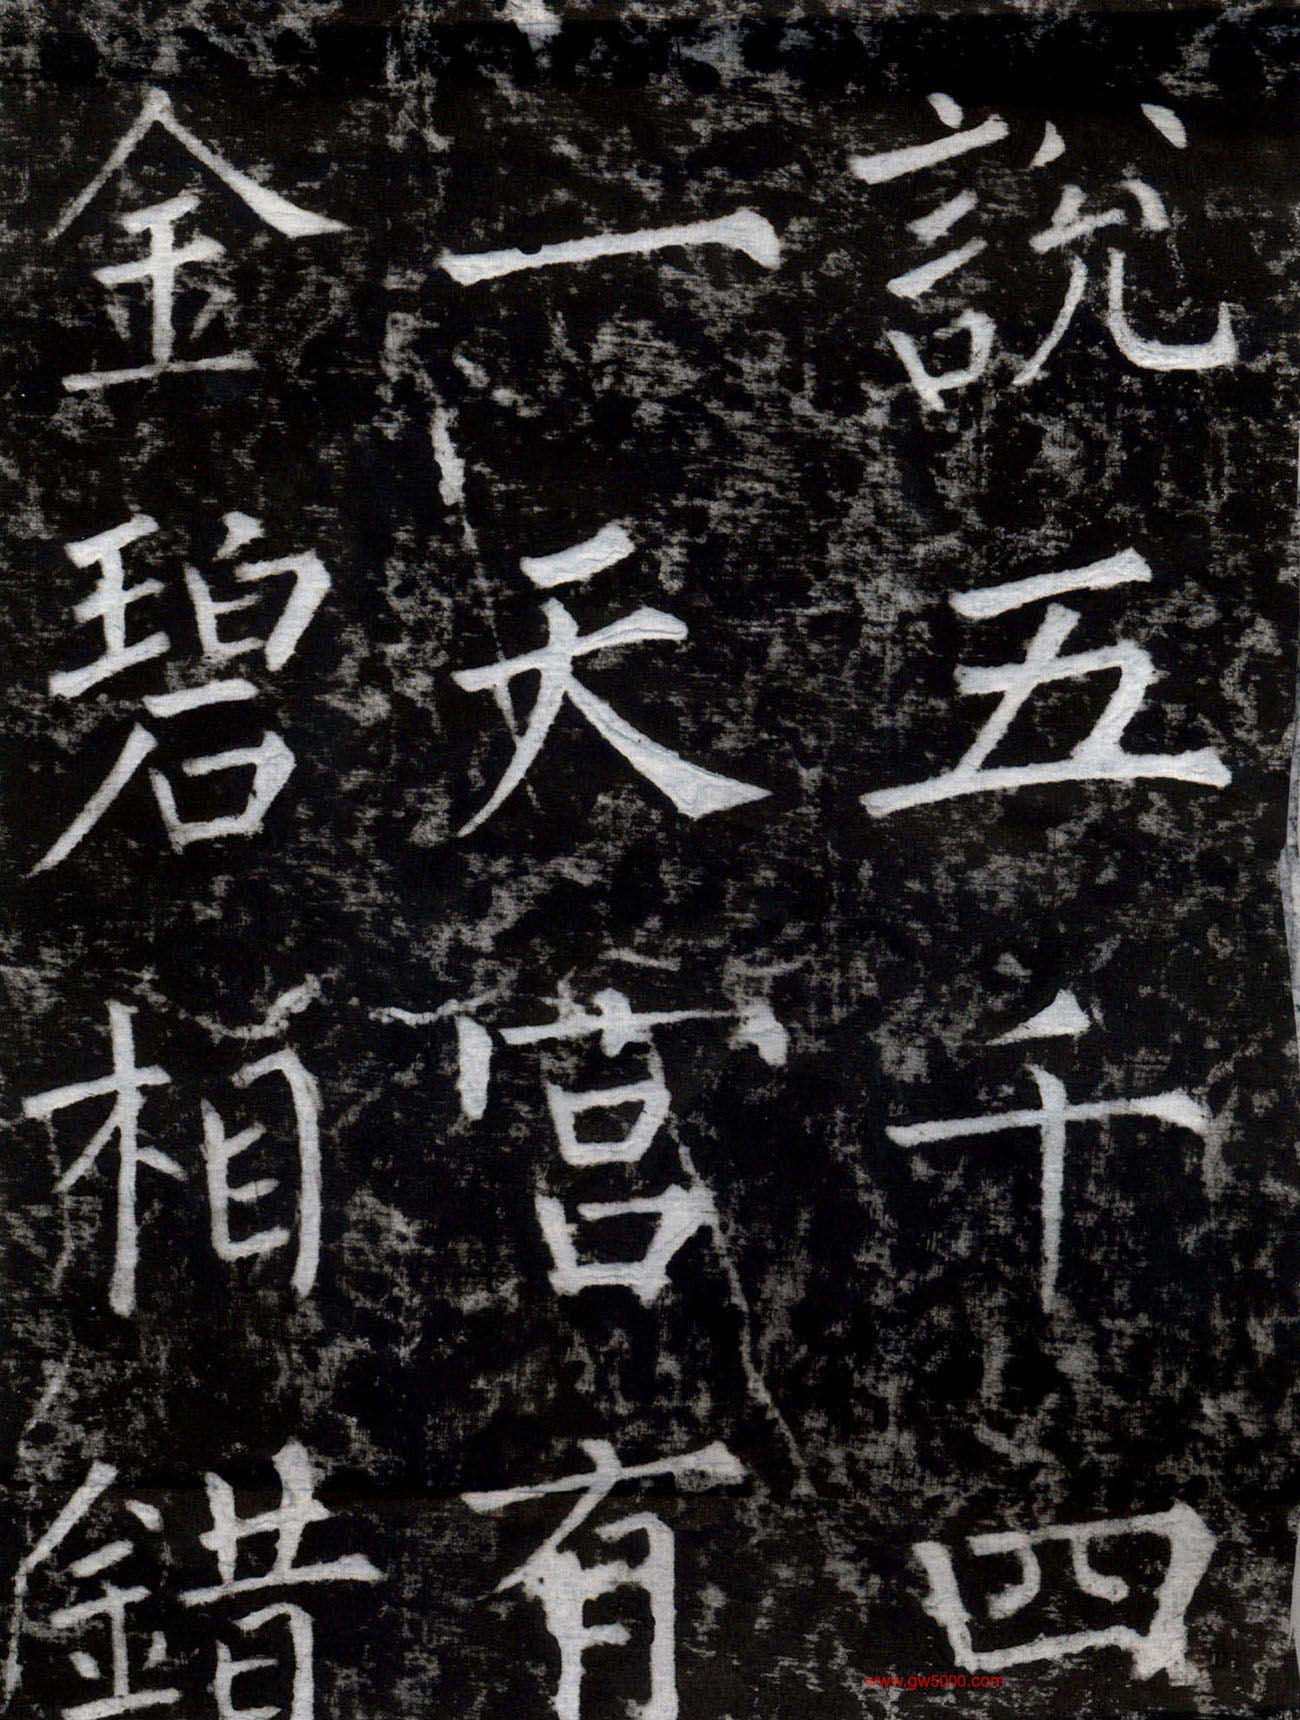 說五千四
一天宫有
金碧相錯
www.gw5000.com